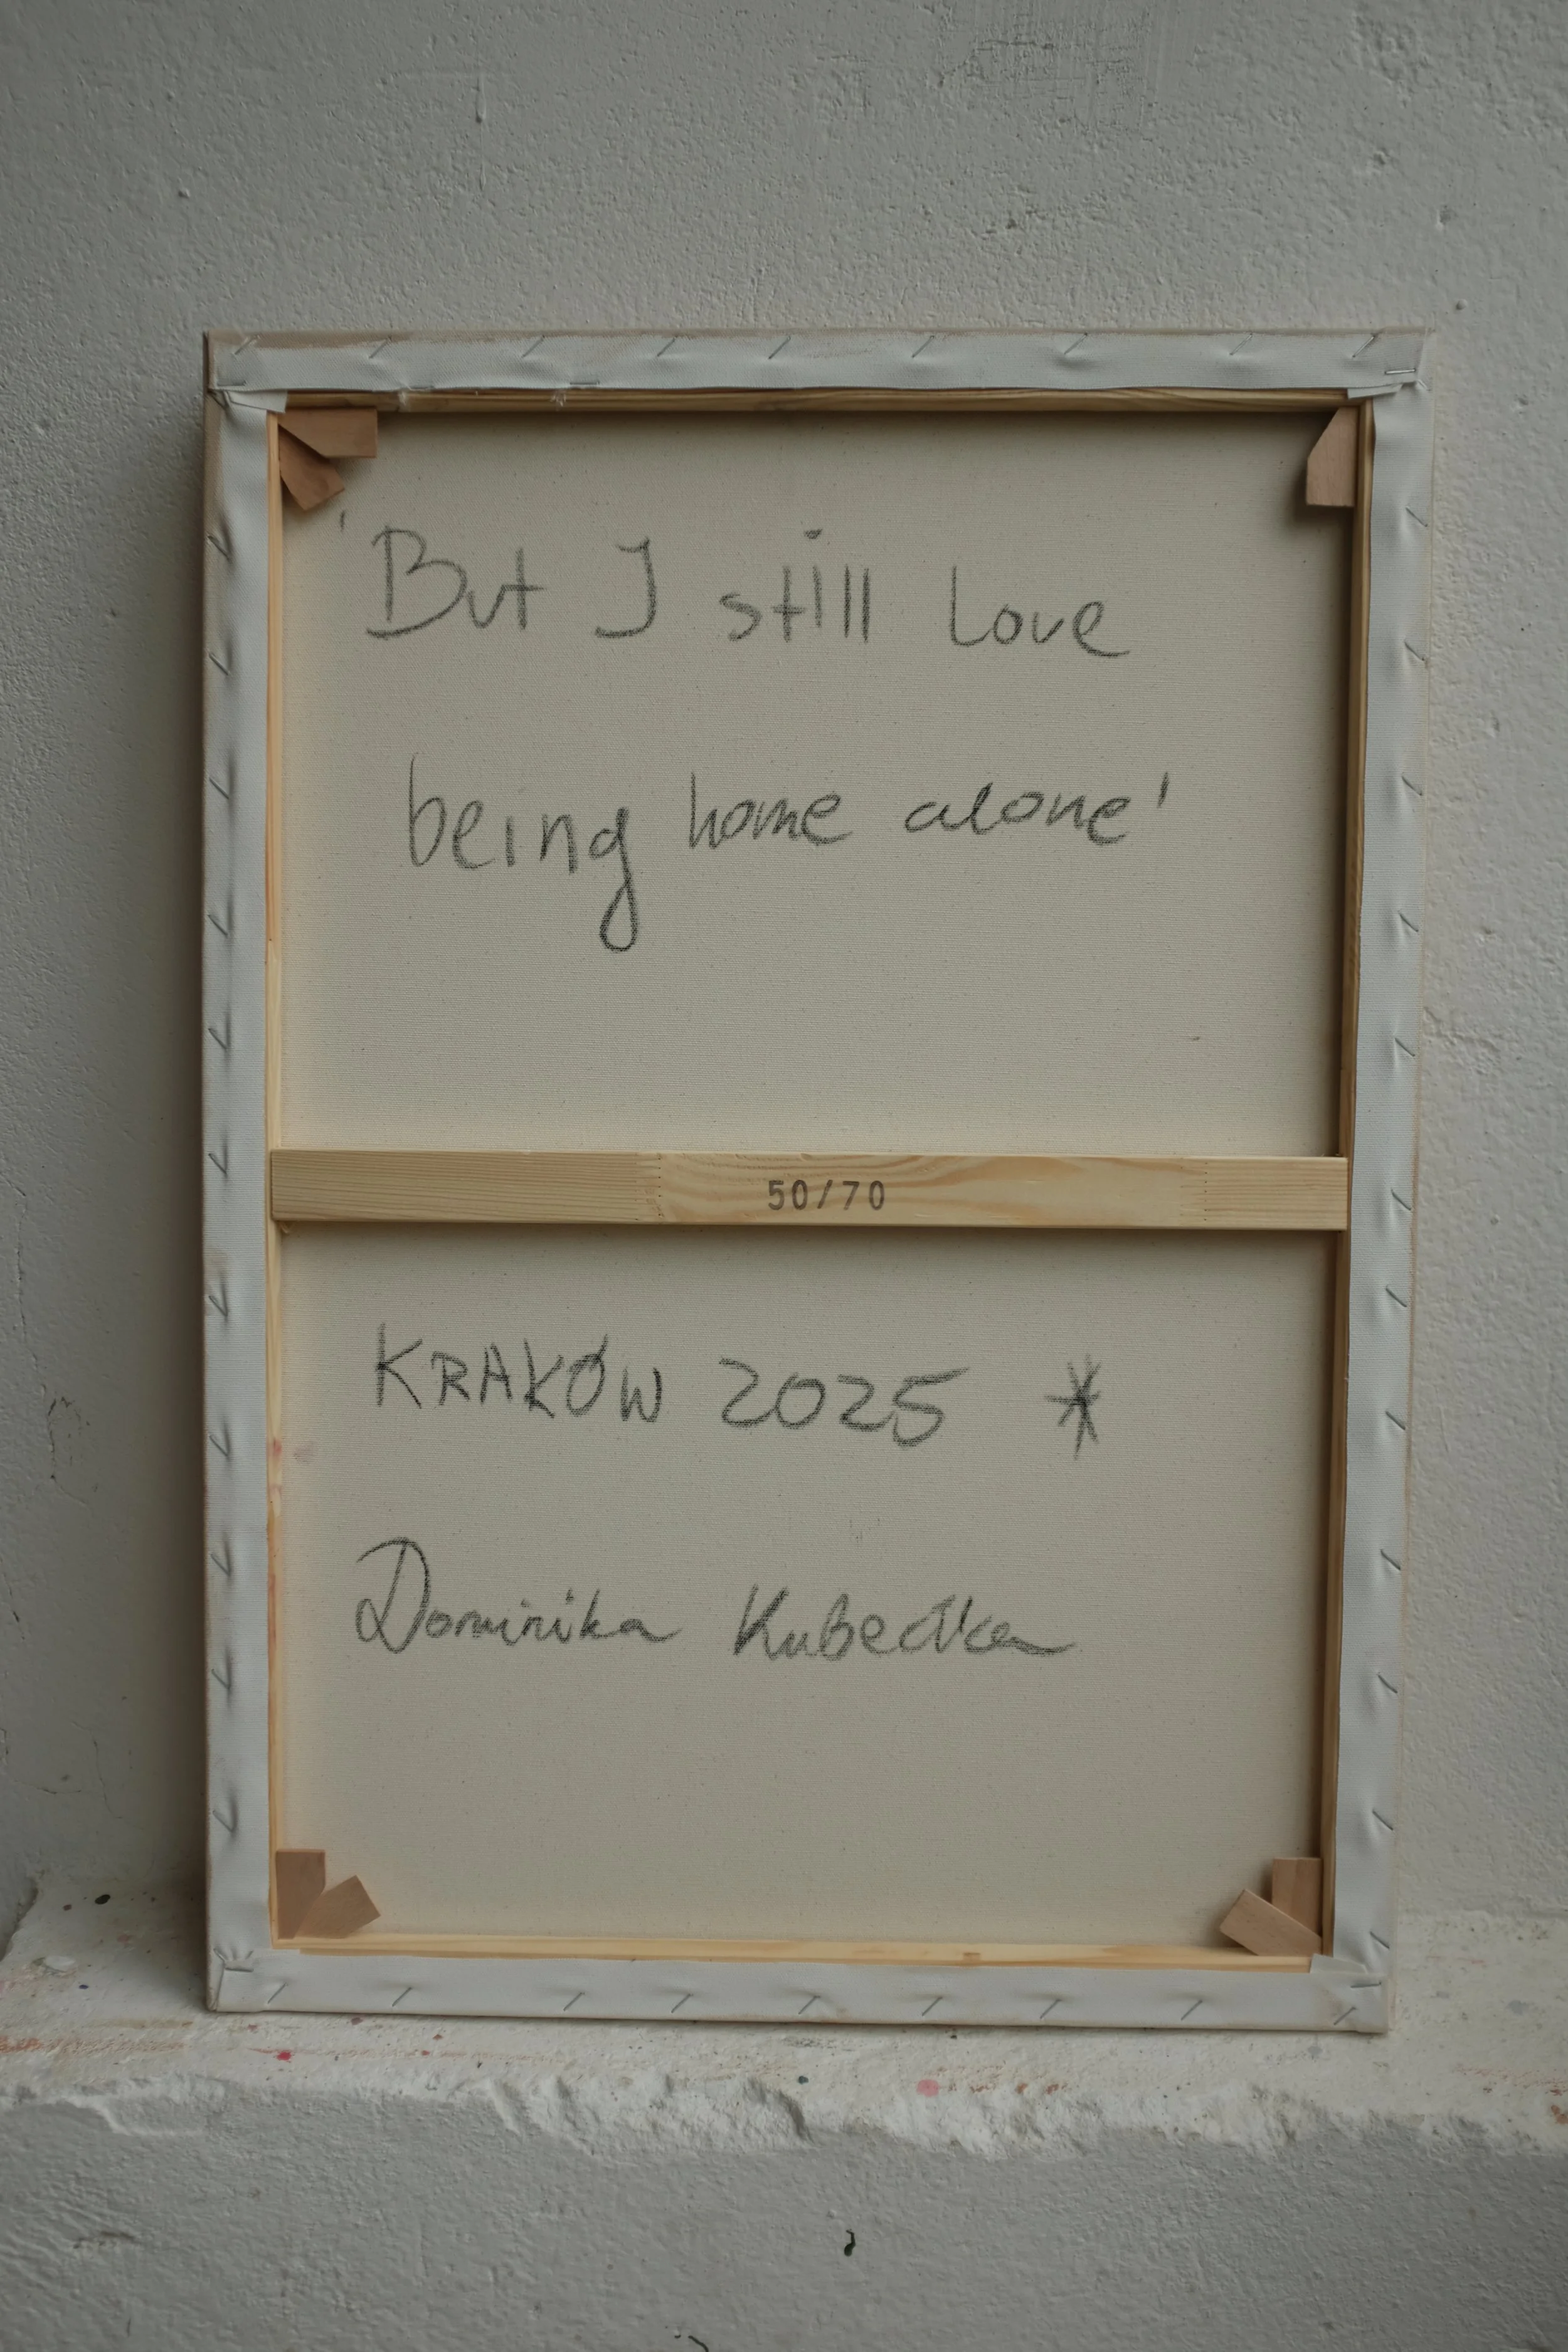 'But I still love
being home alone'
50/70
KRAKÓW 2025 *
Dominika